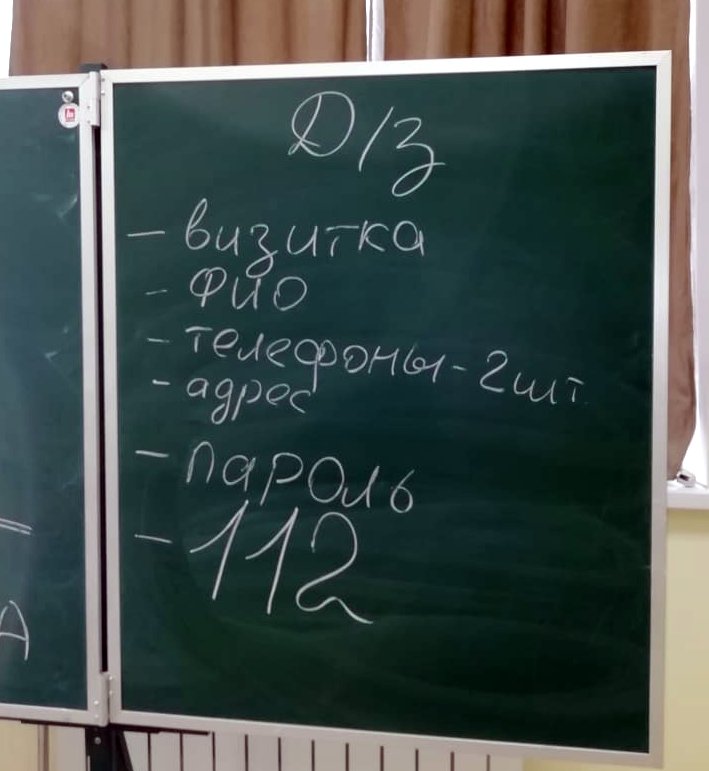 Д/з
- визитка
- ФИО
- телефоны - 2шт
- адрес
- пароль
- 112
А